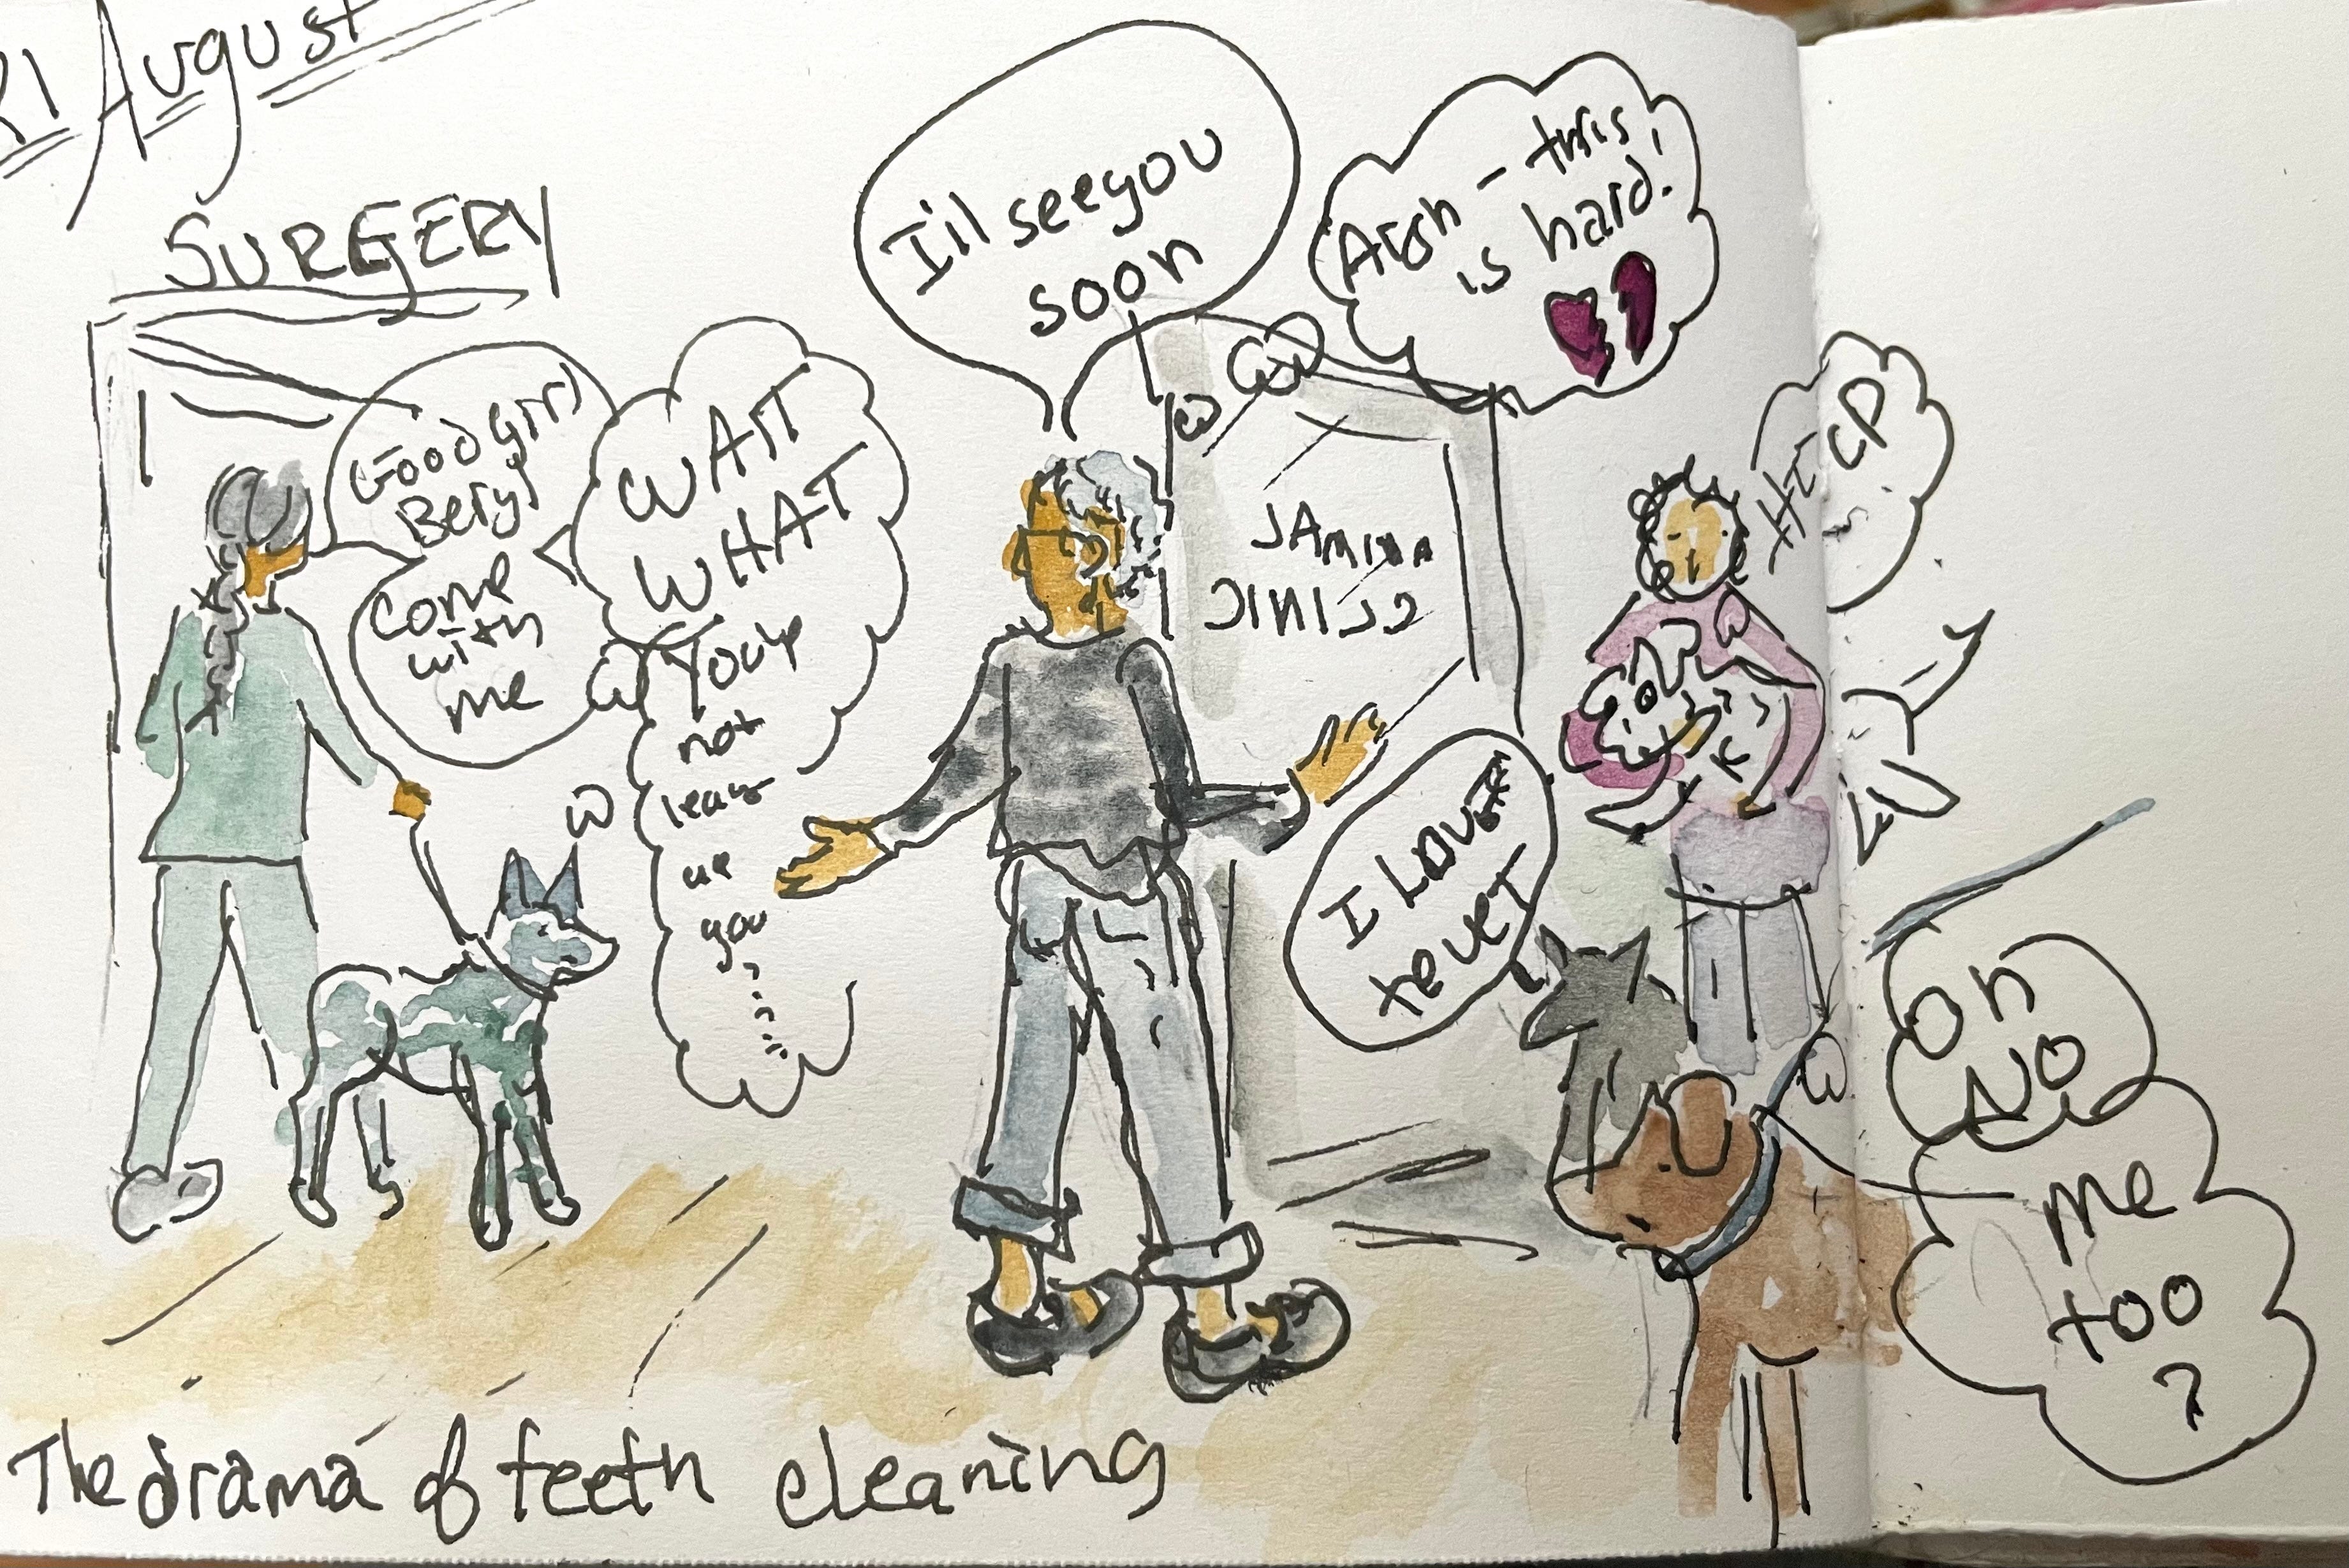 August
SURGERY
Good girl
Beryl
come
with
me
WAIT
WHAT
You're
not
me
you
I'll see you
soon
Argh - this
is hard!
ANIMAL
CLINIC
HELP
I LOVE
VET
Oh
NO
me
too
?
The drama of teeth cleaning